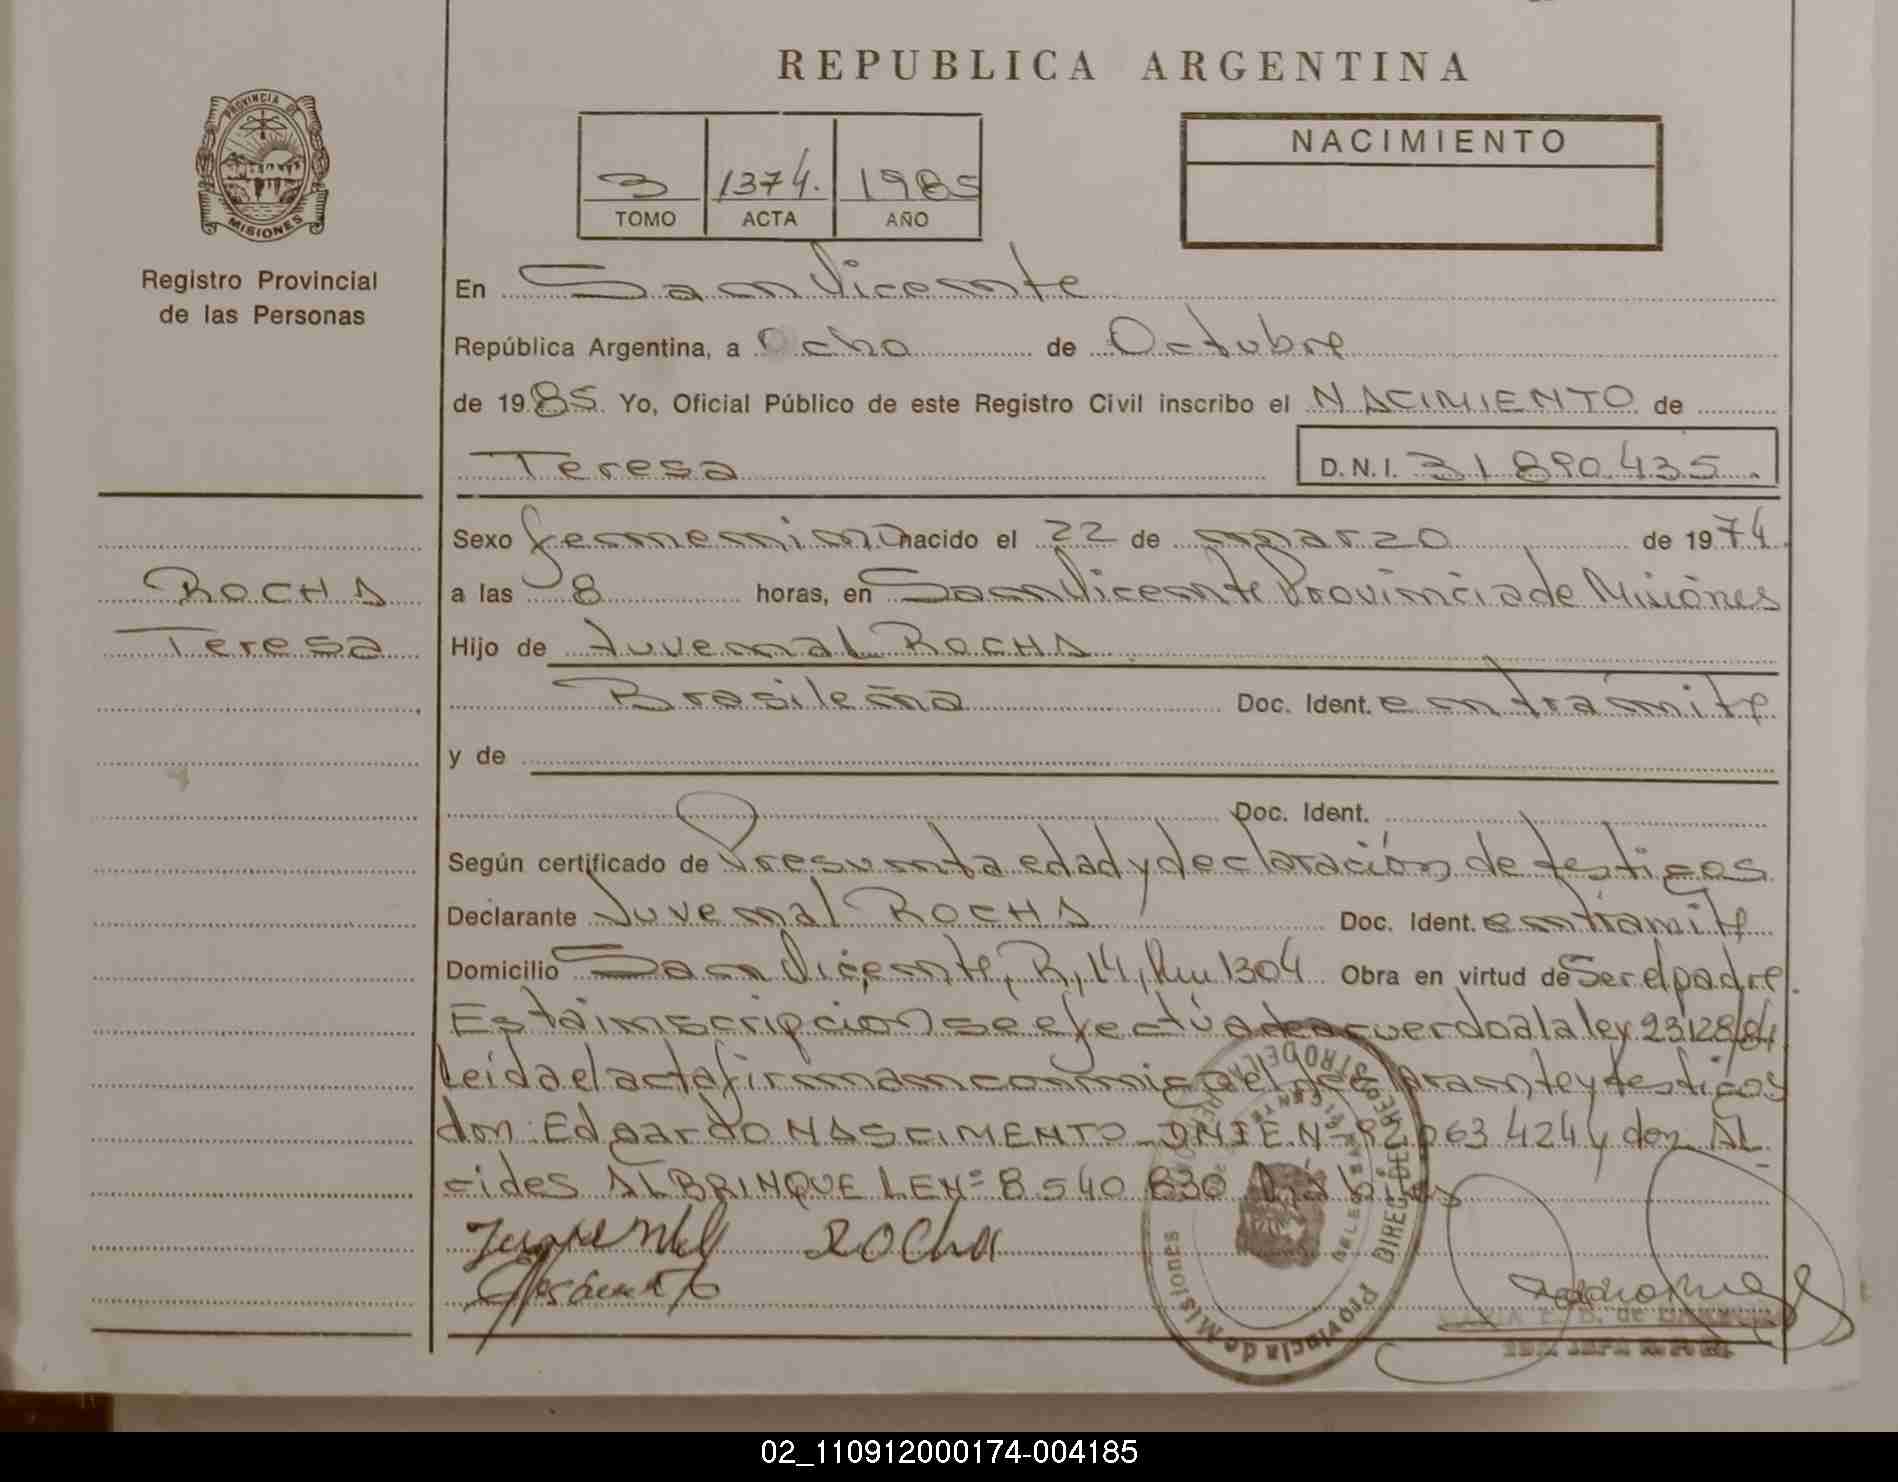 REPUBLICA ARGENTINA
PROVINCIA DE
MISIONES
Registro Provincial
de las Personas
3 1374. 1985
TOMO ACTA AÑO
NACIMIENTO
En San Vicente
República Argentina, a Ocho de Octubre
de 1985 Yo, Oficial Público de este Registro Civil inscribo el NACIMIENTO de
Teresa D.N.I. 31890435.
Sexo femenino nacido el 22 de marzo de 1974
ROCHA
Teresa
a las 8 horas, en San Vicente Provincia de Misiones
Hijo de Juvenal ROCHA
Brasileña Doc. Ident. en trámite
y de
Doc. Ident.
Según certificado de Presunta edad y declaración de testigos
Declarante Juvenal ROCHA Doc. Ident. en tramite
Domicilio San Vicente, R, 14, Km 1304 Obra en virtud de Ser el padre.
Esta inscripcion se efectúa de acuerdo a la ley 23128/84
Leida el acta firman conmigo el declarante y testigos
don Edgardo NASCIMENTO DNIE Nº 92063424 y don AL
cides ALBRINQUE LE Nº 8540830 Hábiles
Juvenal ROCHA
Provincia de Misiones
02_110912000174-004185